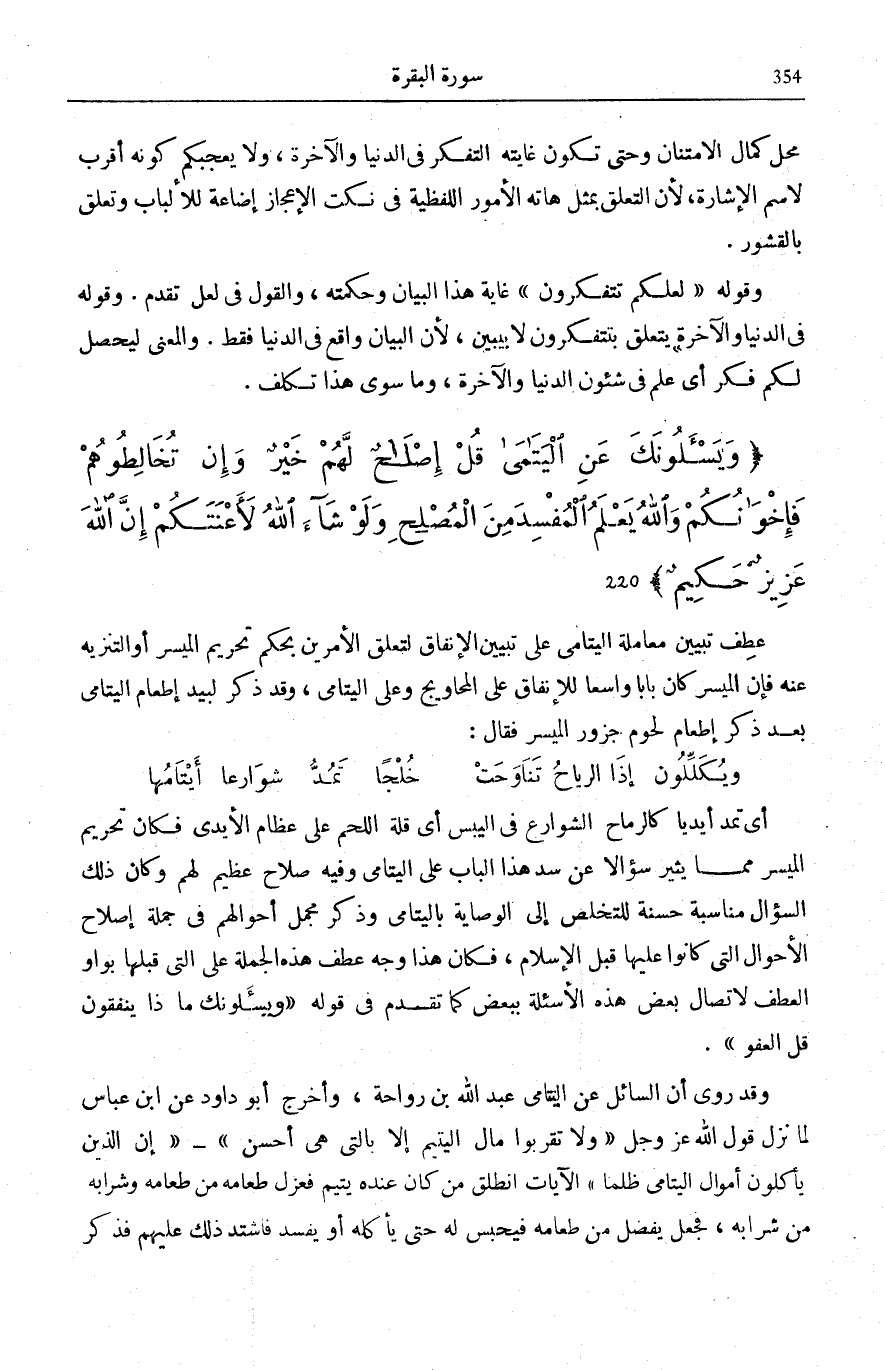 354
سورة البقرة
محل كمال الامتنان وحتى تكون غايته التفكر فى الدنيا والآخرة ، ولا يعجبكم كونه أقرب
لاسم الإشارة، لأن التعلق بمثل هاته الأمور اللفظية فى نكت الإعجاز إضاعة للألباب وتعلق
بالقشور .
وقوله « لعلكم تتفكرون » غاية هذا البيان وحكمته ، والقول فى لعل تقدم . وقوله
فى الدنيا والآخرة يتعلق بتتفكرون لا بيبين ، لأن البيان واقع فى الدنيا فقط . والمعنى ليحصل
لكم فكر أى علم فى شئون الدنيا والآخرة ، وما سوى هذا تكلف .
﴿ وَيَسْـَٔلُونَكَ عَنِ ٱلْيَتَٰمَىٰ قُلْ إِصْلَٰحٌ لَّهُمْ خَيْرٌ وَإِن تُخَالِطُوهُمْ
فَإِخْوَٰنُكُمْ وَٱللَّهُ يَعْلَمُ ٱلْمُفْسِدَ مِنَ الْمُصْلِحِ وَلَوْ شَآءَ ٱللَّهُ لَأَعْنَتَكُمْ إِنَّ ٱللَّهَ
عَزِيزٌ حَكِيمٌ ﴾ 220
عطف تبيين معاملة اليتامى على تبيين الإنفاق لتعلق الأمرين بحكم تحريم الميسر أو التنزيه
عنه فإن الميسر كان بابا واسعا للإنفاق على المحاويج وعلى اليتامى ، وقد ذكر لبيد إطعام اليتامى
بعد ذكر إطعام لحوم جزور الميسر فقال :
ويُكَلِّلُون إذَا الرياحُ تَنَاوَحَتْ خُلْجًا تَمُدُّ شوَارعا أَيْتَامُها
أى تمد أيديا كالرماح الشوارع فى اليبس أى قلة اللحم على عظام الأيدى فكان تحريم
الميسر مما يثير سؤالا عن سد هذا الباب على اليتامى وفيه صلاح عظيم لهم وكان ذلك
السؤال مناسبة حسنة للتخلص إلى الوصاية باليتامى وذكر مجمل أحوالهم فى جملة إصلاح
الأحوال التى كانوا عليها قبل الإسلام ، فكان هذا وجه عطف هذه الجملة على التى قبلها بواو
العطف لاتصال بعض هذه الأسئلة ببعض كما تقدم فى قوله «ويسـَٔلونك ما ذا ينفقون
قل العفو » .
وقد روى أن السائل عن اليتامى عبد الله بن رواحة ، وأخرج أبو داود عن ابن عباس
لما نزل قول الله عز وجل « ولا تقربوا مال اليتيم إلا بالتى هى أحسن » ــ « إن الذين
يأكلون أموال اليتامى ظلما » الآيات انطلق من كان عنده يتيم فعزل طعامه من طعامه وشرابه
من شرابه ، فجعل يفضل من طعامه فيحبس له حتى يأكله أو يفسد فاشتد ذلك عليهم فذكر